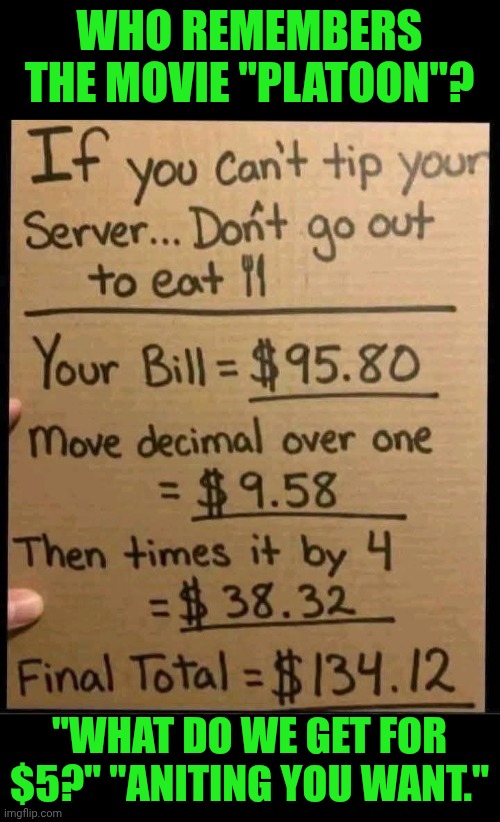 WHO REMEMBERS
THE MOVIE "PLATOON"?
If you can't tip your
Server... Don't go out
to eat 🍴
Your Bill = $95.80
Move decimal over one
= $9.58
Then times it by 4
= $38.32
Final Total = $134.12
"WHAT DO WE GET FOR
$5?" "ANITING YOU WANT."
imgflip.com